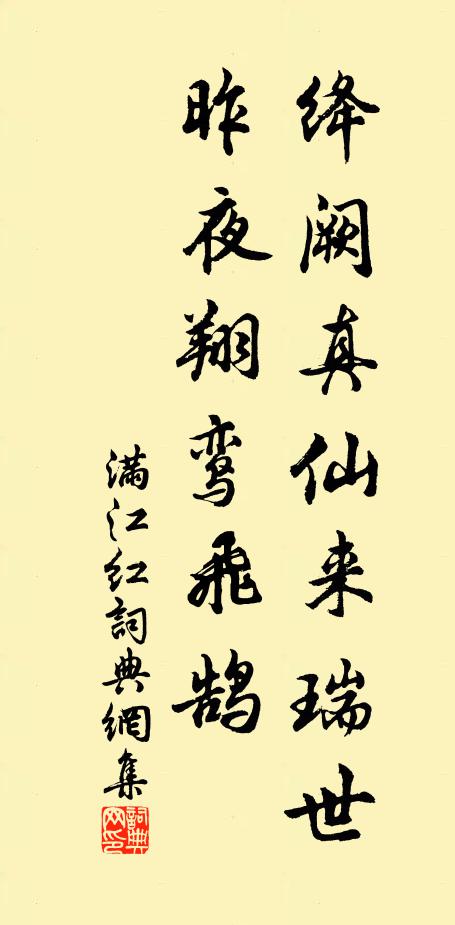 绛阙真仙来瑞世
昨夜翔鸾飞鹄
满江红詞典網集
詞典網印